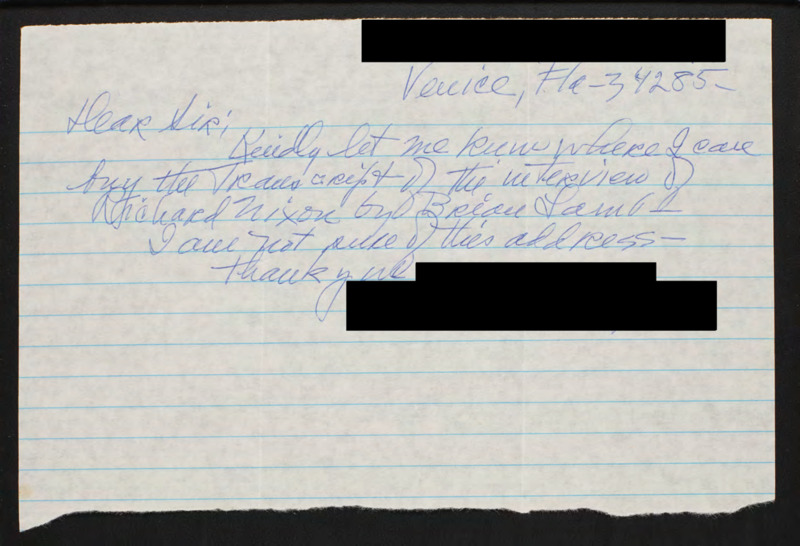 Venice, Fla - 34285 -
Dear Sir;
Kindly let me know where I can
buy the Transcript of the interview of
Richard Nixon by Brian Lamb -
I am not sure of this address -
Thank you